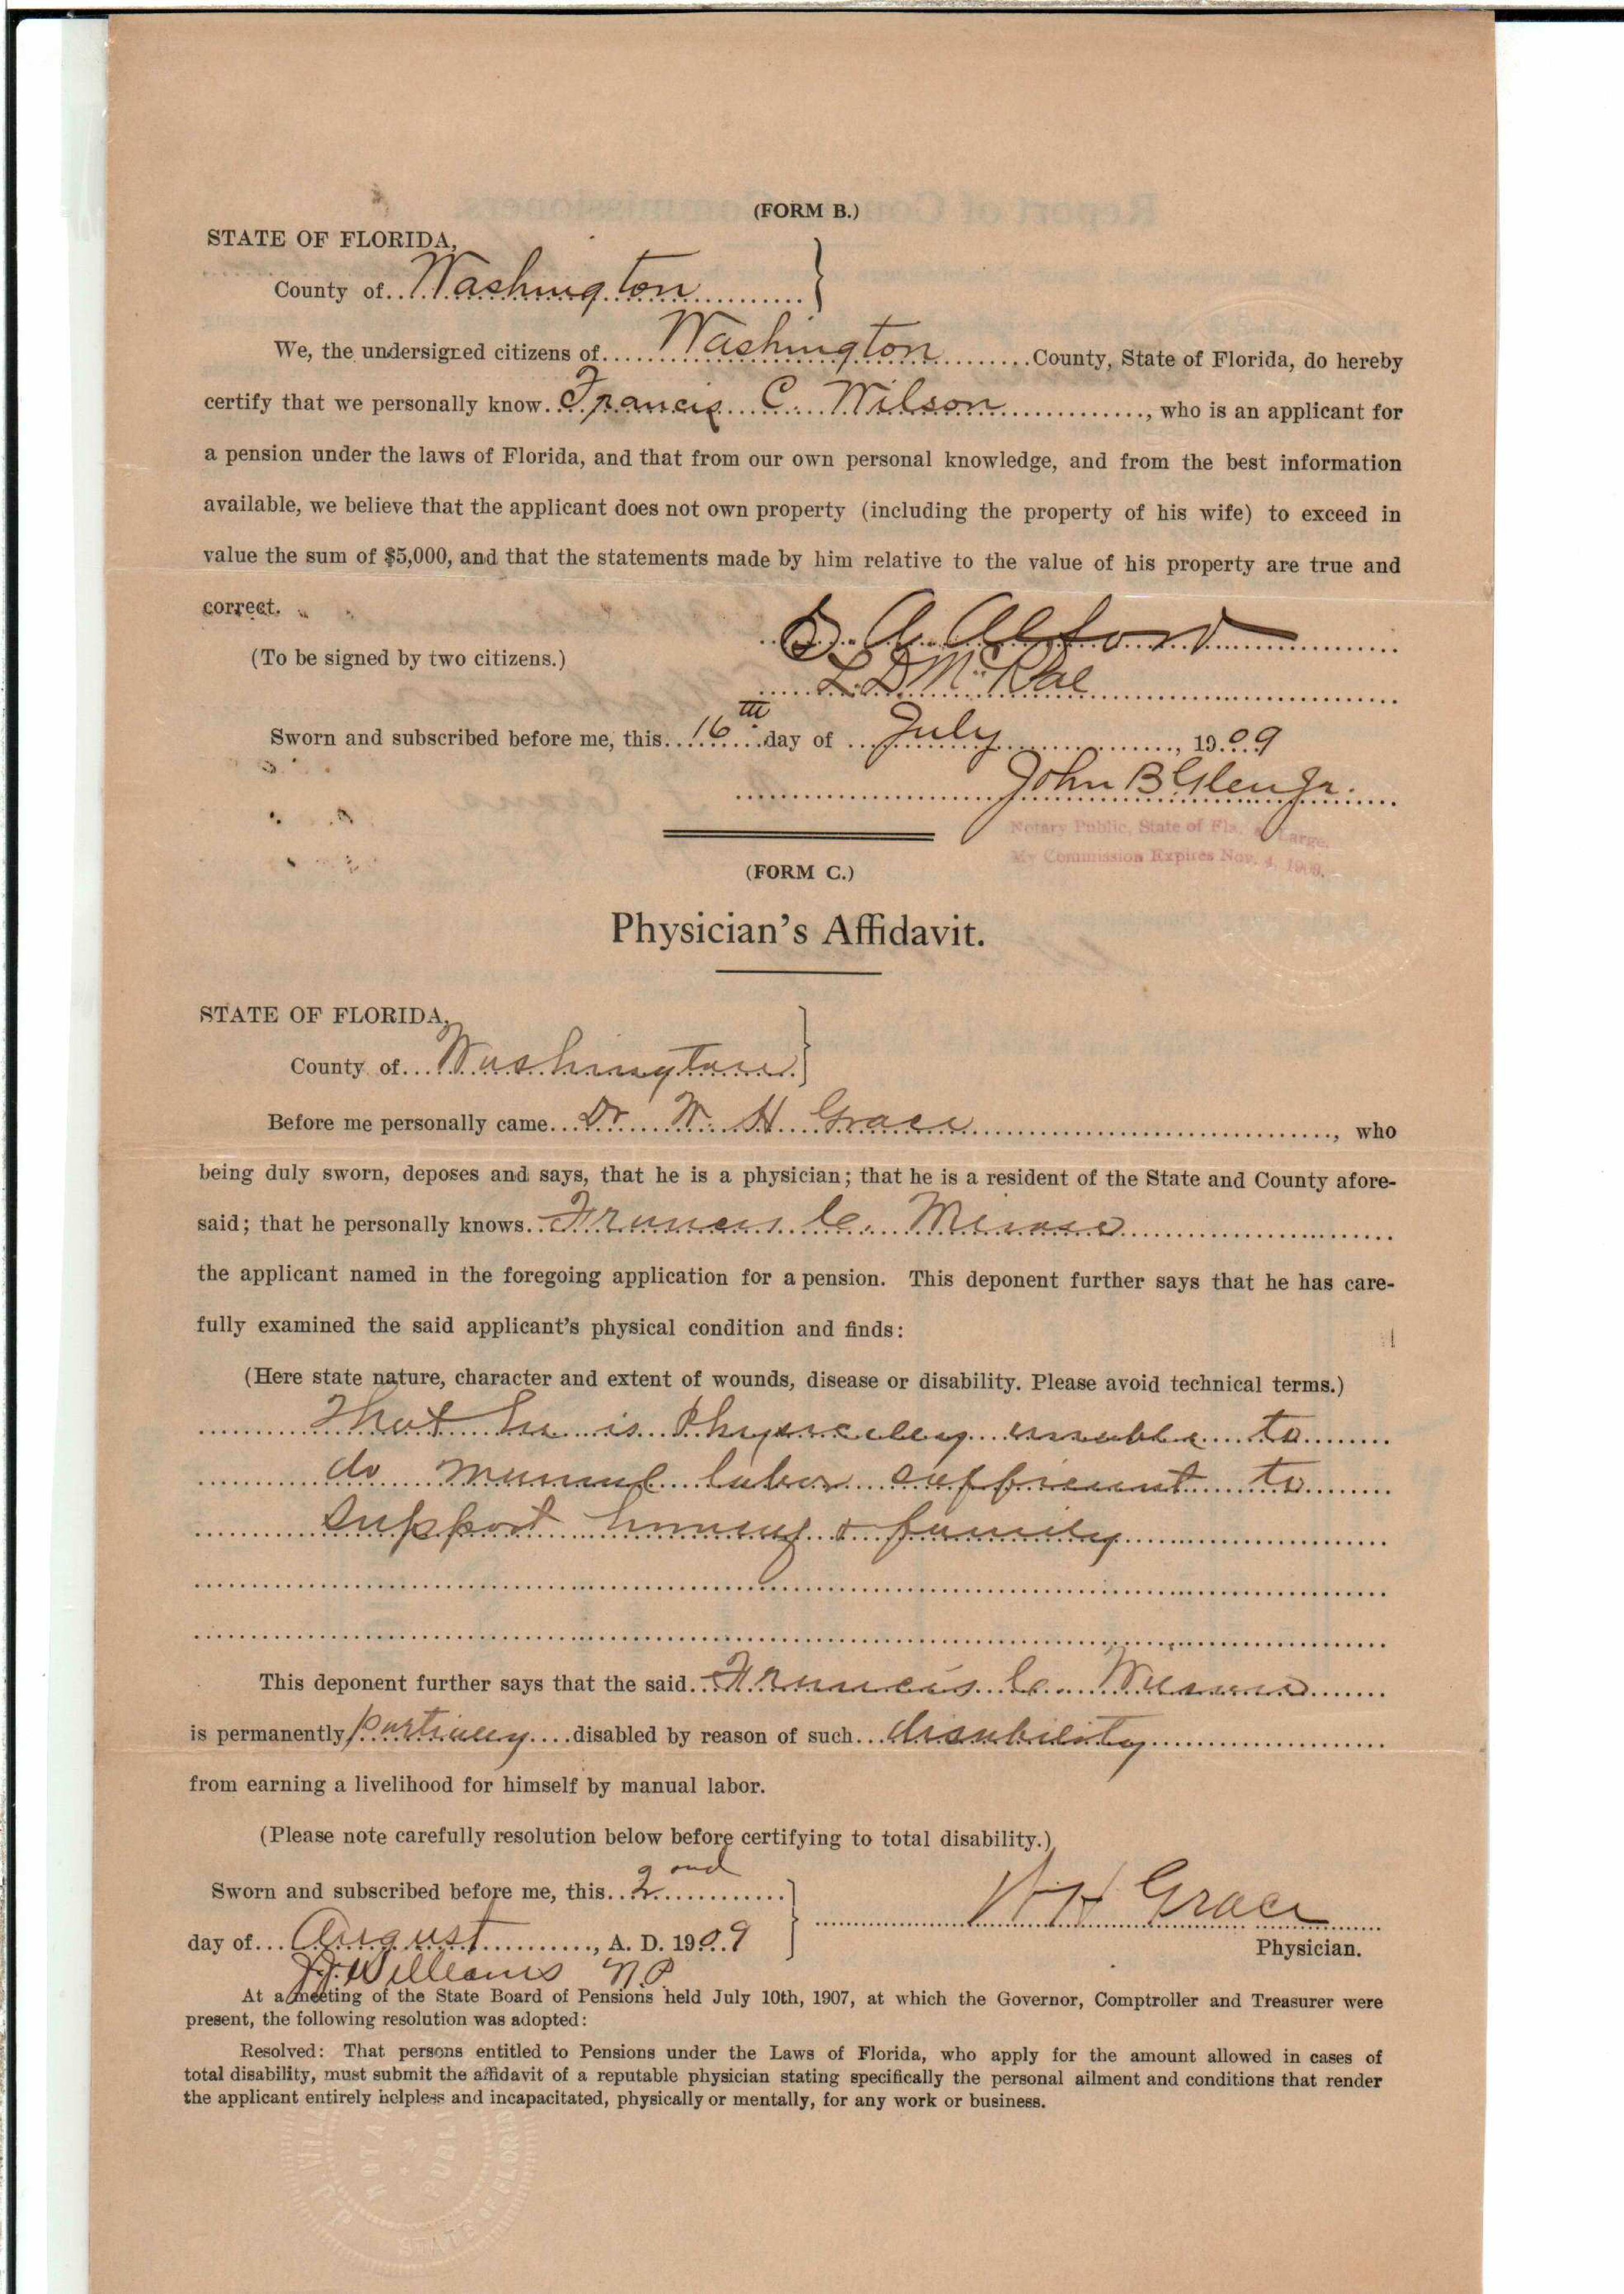 (FORM B.)
STATE OF FLORIDA,
County of Washington
We, the undersigned citizens of Washington County, State of Florida, do hereby
certify that we personally know Francis C. Wilson, who is an applicant for
a pension under the laws of Florida, and that from our own personal knowledge, and from the best information
available, we believe that the applicant does not own property (including the property of his wife) to exceed in
value the sum of $5,000, and that the statements made by him relative to the value of his property are true and
correct.
A. Alford
(To be signed by two citizens.)
L D McRae
Sworn and subscribed before me, this 16th day of July, 1909
John B Glen Jr.
Notary Public, State of Fla. Large.
My Commission Expires Nov. 4,
(FORM C.)
Physician's Affidavit.
STATE OF FLORIDA,
County of Washington
Before me personally came Dr. W. H. Grace, who
being duly sworn, deposes and says, that he is a physician; that he is a resident of the State and County afore-
said; that he personally knows Francis C.
the applicant named in the foregoing application for a pension. This deponent further says that he has care-
fully examined the said applicant's physical condition and finds:
(Here state nature, character and extent of wounds, disease or disability. Please avoid technical terms.)
That he is Physically unable to
do manual labor sufficient to
support himself & family
This deponent further says that the said Francis C.
is permanently partially disabled by reason of such disability
from earning a livelihood for himself by manual labor.
(Please note carefully resolution below before certifying to total disability.)
Sworn and subscribed before me, this 2ond
W H Grace
day of August, A. D. 1909
Physician.
J.J. Williams N.P.
At a meeting of the State Board of Pensions held July 10th, 1907, at which the Governor, Comptroller and Treasurer were
present, the following resolution was adopted:
Resolved: That persons entitled to Pensions under the Laws of Florida, who apply for the amount allowed in cases of
total disability, must submit the affidavit of a reputable physician stating specifically the personal ailment and conditions that render
the applicant entirely helpless and incapacitated, physically or mentally, for any work or business.